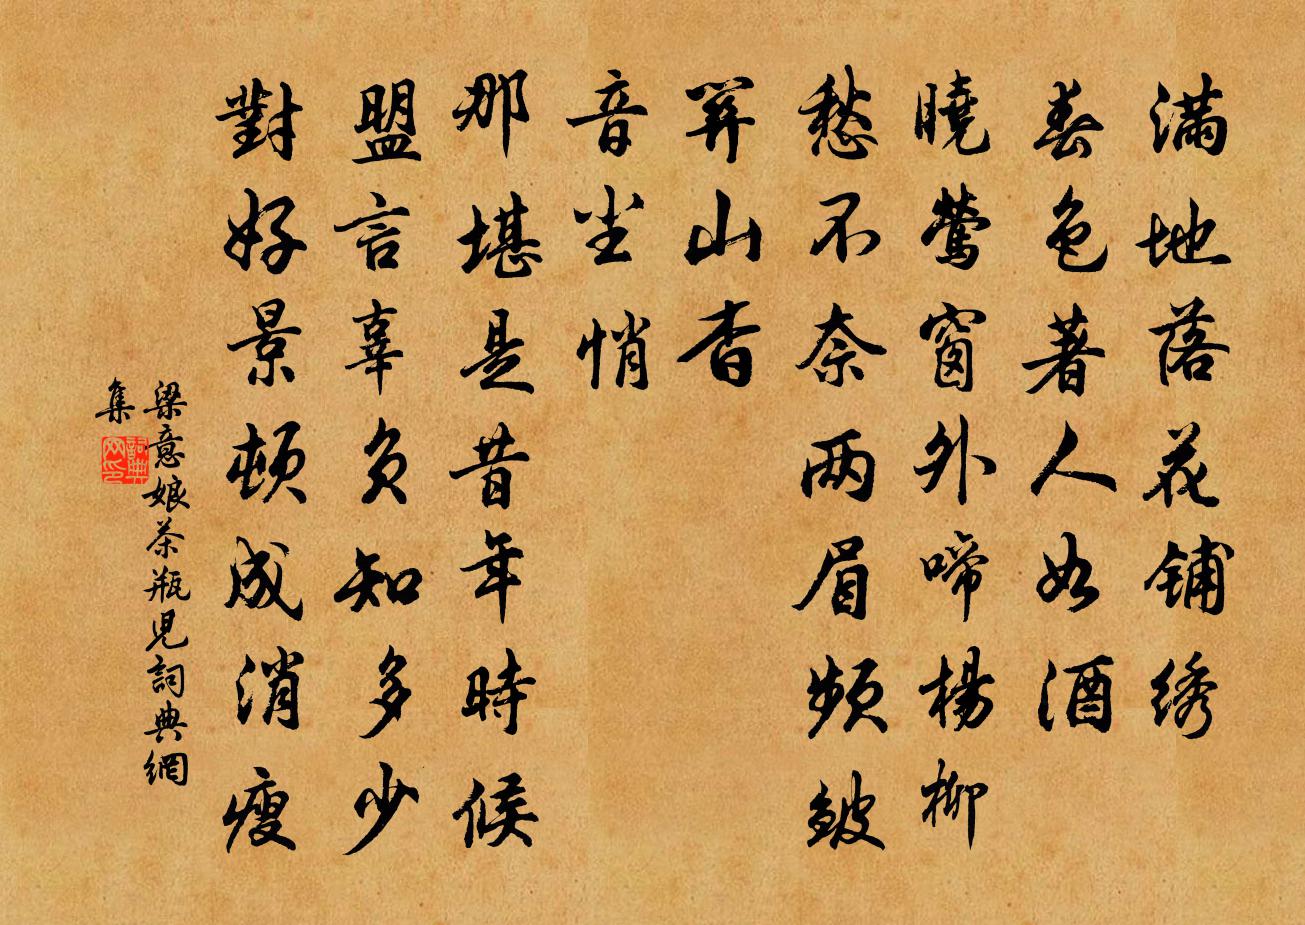 满地落花铺绣
春色著人如酒
曉鶯窗外啼楊柳
愁不奈两眉频皱
關山杳
音尘悄
那堪是昔年時候
盟言辜负知多少
對好景顿成消瘦
梁意娘茶瓶児詞典網
集
詞典网印